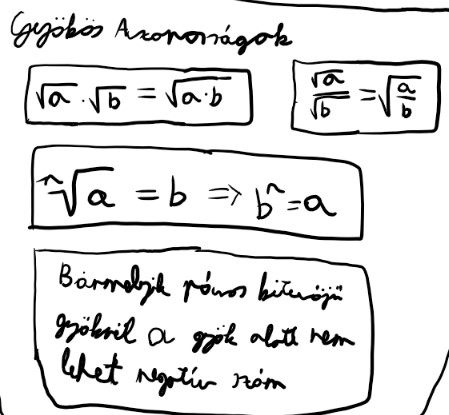 Gyökös Azonosságok
√a · √b = √(a·b)
√a/√b = √(a/b)
ⁿ√a = b ⇒ bⁿ = a
Bármelyik páros kitevőjű
gyöknél a gyök alatt nem
lehet negatív szám